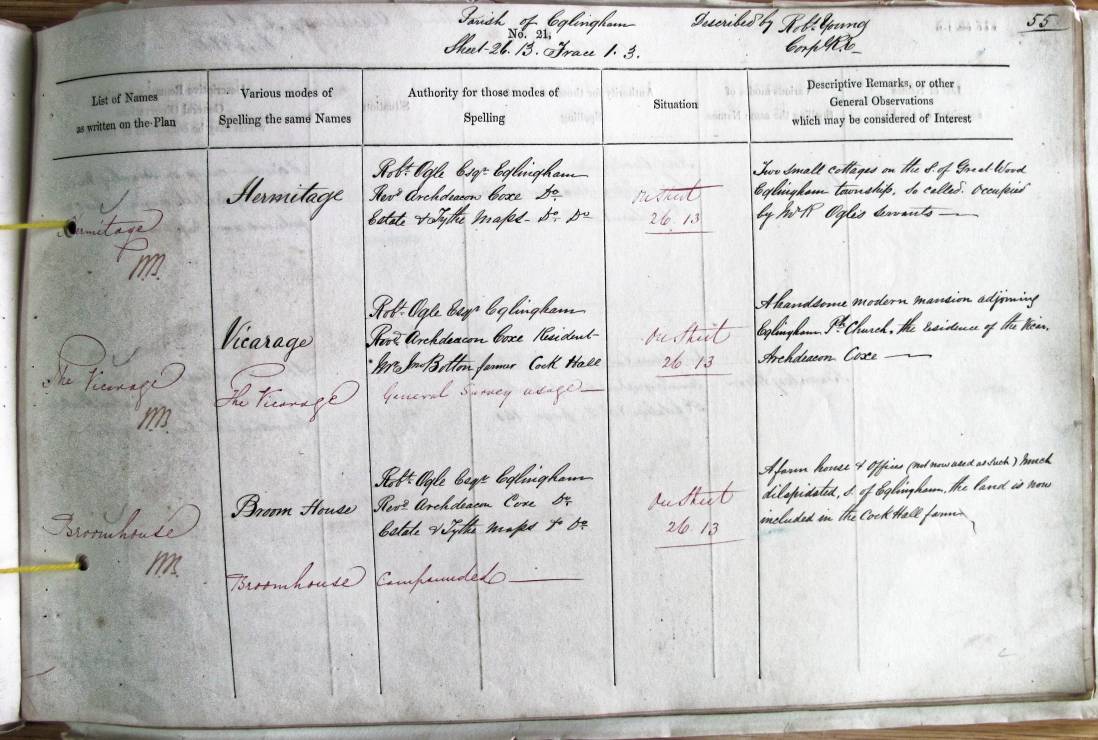 Parish of Eglingham
No. 21,
Sheet 26.13. Trace 1. 3.
Described by Robt. Young
Corpl R.E.
55
List of Names
as written on the Plan
Various modes of
Spelling the same Names
Authority for those modes of
Spelling
Situation
Descriptive Remarks, or other
General Observations
which may be considered of Interest
Hermitage
Hermitage
Robt. Ogle Esqr. Eglingham
Revd. Archdeacon Coxe Do.
Estate & Tythe Maps Do. Do.
On Sheet
26.13
Two small cottages on the S. of Great Wood
Eglingham township, so called. Occupied
by Mr R Ogle's servants
The Vicarage
Vicarage
The Vicarage
Robt. Ogle Esqr. Eglingham
Revd. Archdeacon Coxe Resident
Mr. Jno Botton farmer Cock Hall
General Survey usage
On Sheet
26.13
A handsome modern mansion adjoining
Eglingham Ph. Church, the Residence of the Vicar,
Archdeacon Coxe
Broomhouse
Broom House
Broomhouse
Robt. Ogle Esqr. Eglingham
Revd. Archdeacon Coxe Do.
Estate & Tythe Maps & Do.
Compounded
On Sheet
26.13
A farm house & Offices (not now used as such) Much
dilapidated, S. of Eglingham, the land is now
included in the Cock Hall farm